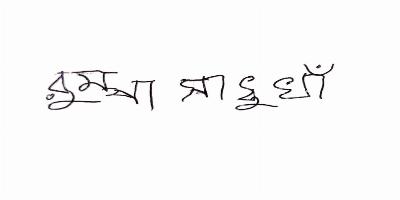 রুম্পা সাধুখাঁ